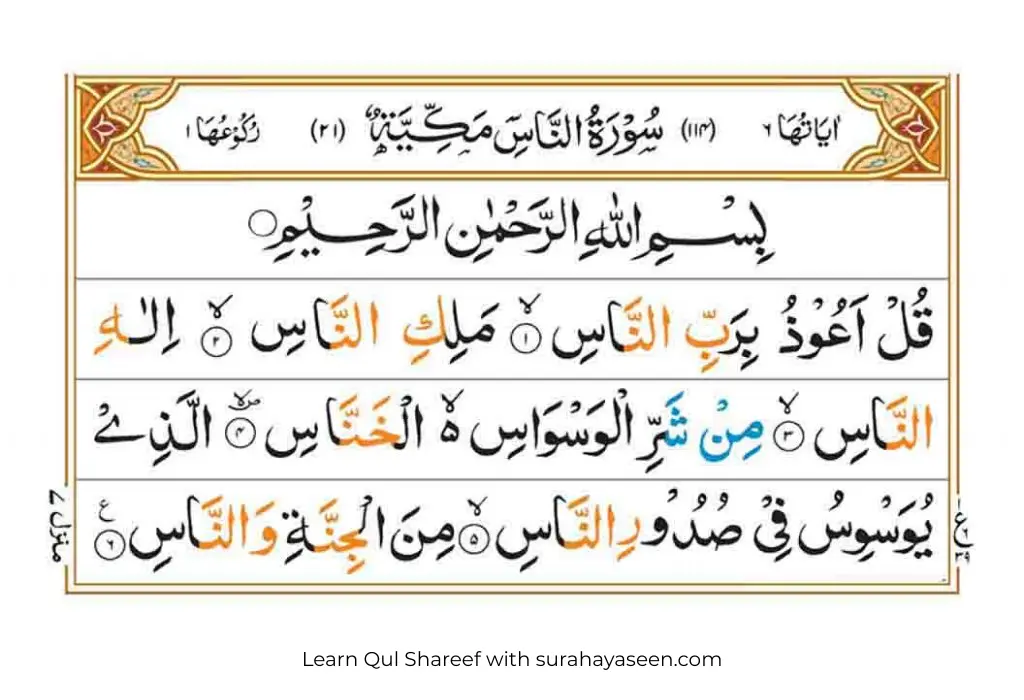 اٰيَاتُهَا ٦ (١١٤) سُوْرَةُ النَّاسِ مَكِّيَّةٌ (٢١) رُكُوْعُهَا ١
بِسْمِ اللهِ الرَّحْمٰنِ الرَّحِيْمِ
قُلْ اَعُوْذُ بِرَبِّ النَّاسِ ۙ﴿١﴾ مَلِكِ النَّاسِ ۙ﴿٢﴾ اِلٰهِ
النَّاسِ ۙ﴿٣﴾ مِنْ شَرِّ الْوَسْوَاسِ ۙ۬ الْخَنَّاسِ ﴿٤﴾ الَّذِيْ
يُوَسْوِسُ فِيْ صُدُوْرِ النَّاسِ ۙ﴿٥﴾ مِنَ الْجِنَّةِ وَالنَّاسِ ﴿٦﴾
منزل ٧
ع
٣٩
Learn Qul Shareef with surahayaseen.com